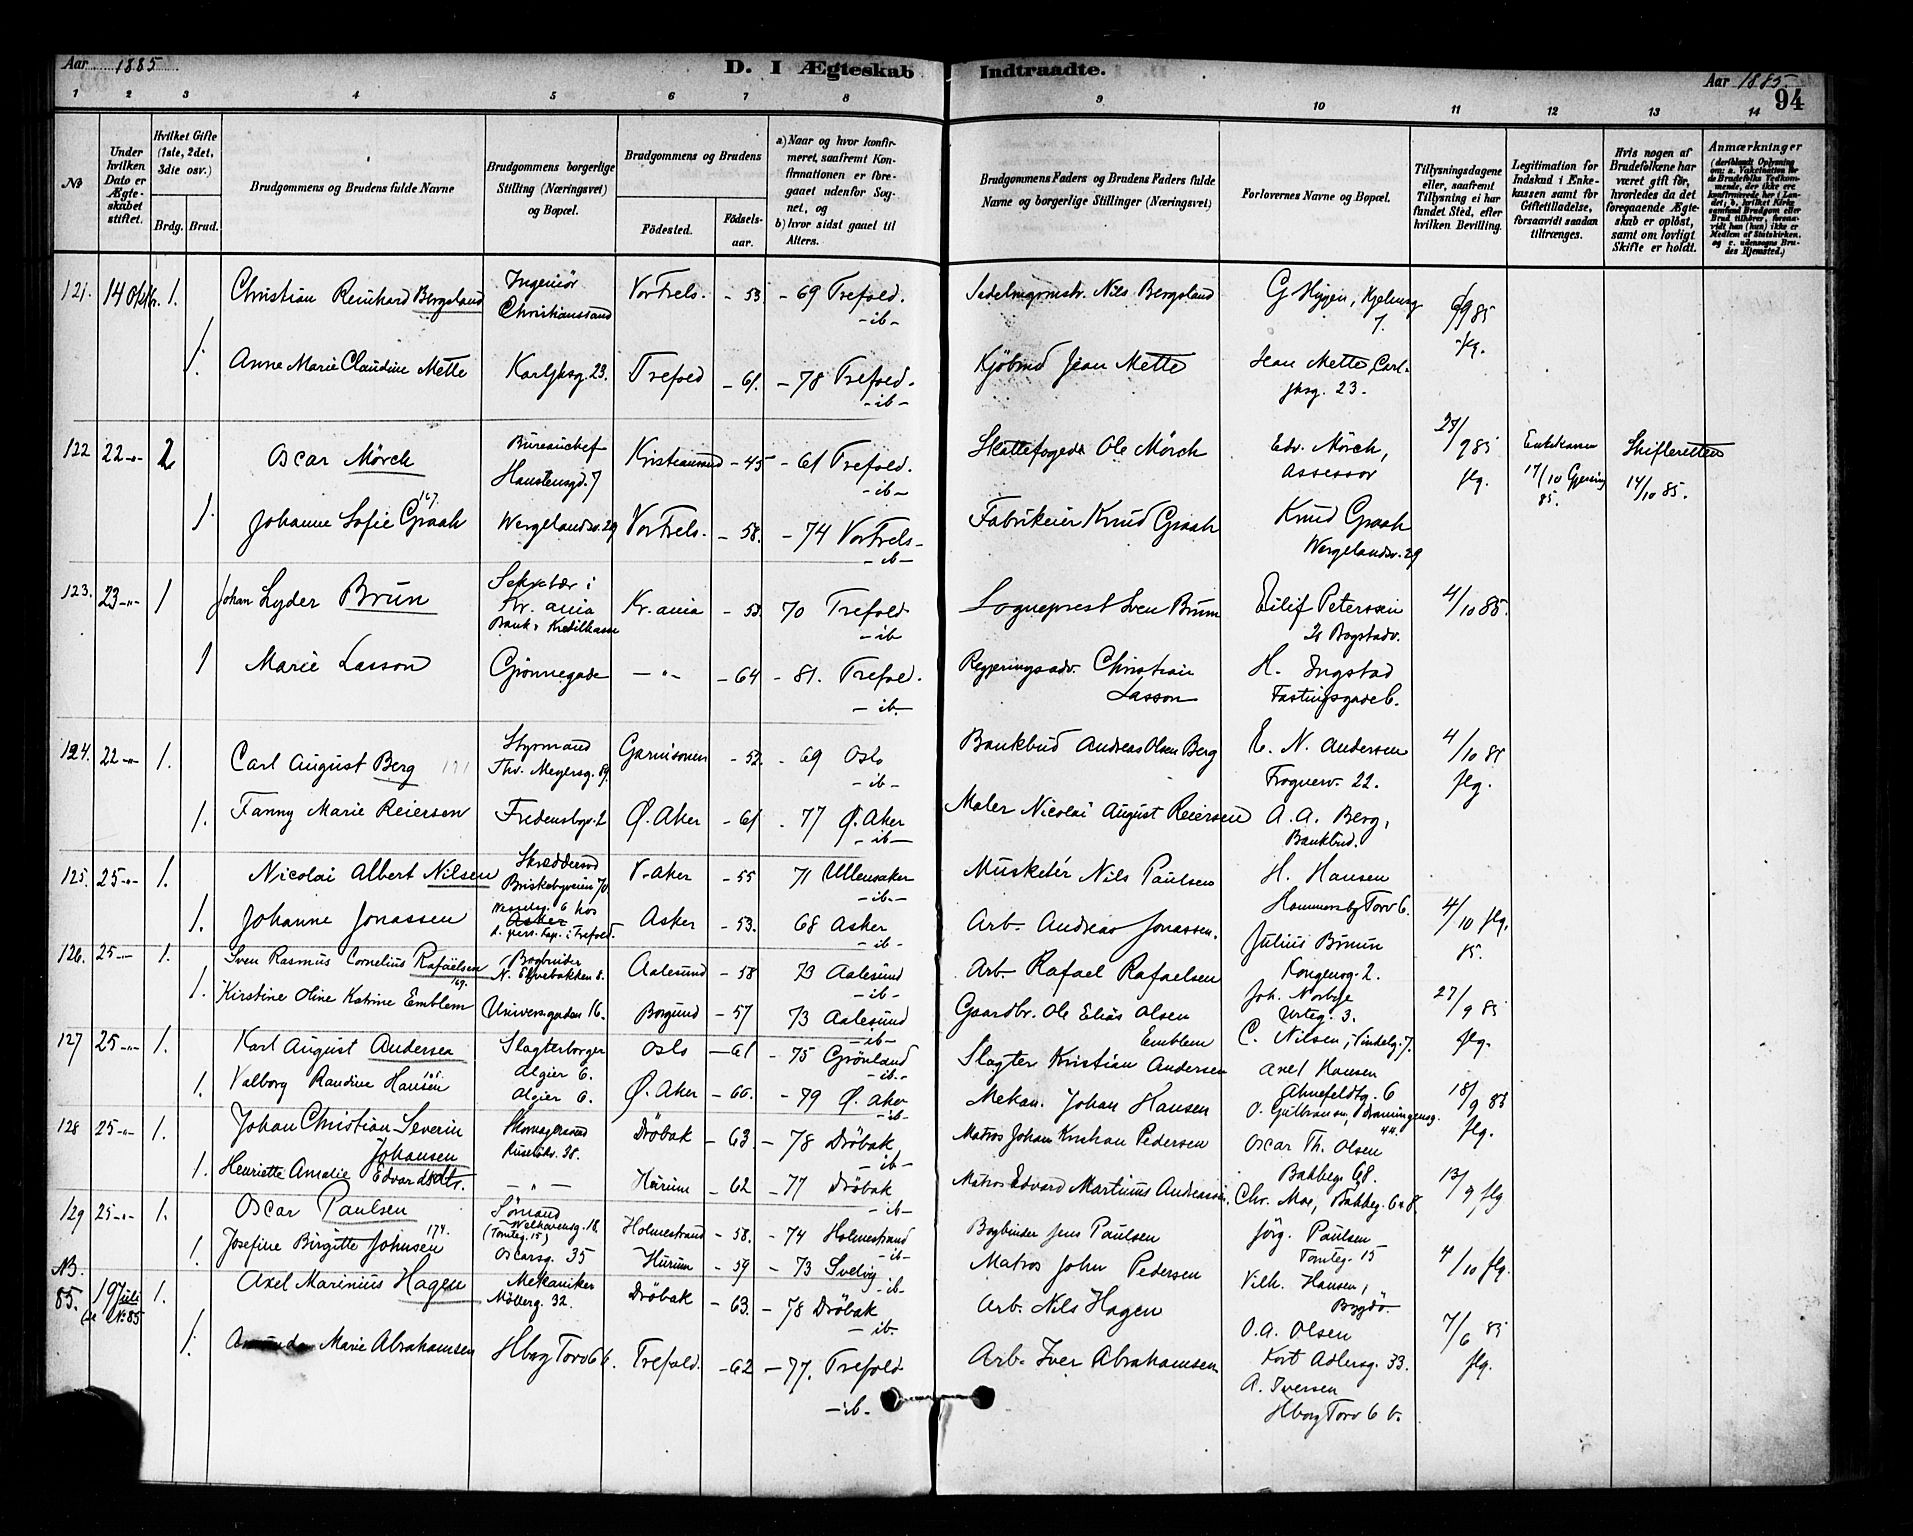 Aar 1885
D. I Ægteskab Indtraadte.
Aar 1885.
94
1 2 3 4 5 6 7 8 9 10 11 12 13 14
No
Under hvilken Dato er Ægteskabet stiftet.
Hvilket Gifte (1ste, 2det, 3die osv.)
Brdg. Brud.
Brudgommens og Brudens fulde Navne
Brudgommens borgerlige Stilling (Næringsvei) og Bopæl.
Brudgommens og Brudens
Födested. Födsels-aar.
a) Naar og hvor konfirmeret, saafremt Konfirmationen er foregaaet udenfor Sognet, og
b) hvor sidst gaaet til Alters.
Brudgommens Faders og Brudens Faders fulde Navne og borgerlige Stillinger (Næringsvei)
Forlovernes Navne og Bopæl.
Tillysningsdagene eller, saafremt Tillysning ei har fundet Sted, efter hvilken Bevilling.
Legitimation for Indskud i Enkekassen samt for Giftetilladelse, forsaavidt saadan tiltrænges.
Hvis nogen af Brudefolkene har været gift för, hvorledes da det foregaaende Ægteskab er oplöst, samt om lovligt Skifte er holdt.
Anmærkninger
121. 14 Oktbr. 1. Christian Reinhard Bergsland Ingeniör Christianssand Vor Frels. - 53 - 69 Trefold. -ib- Sadelmagermstr. Nils Bergsland G Higgen, Kjelensg 7. 6/9 85 flg.
1. Anne Marie Claudine Mette Karl Jhsg. 23. Trefold - 61. - 78 Trefold. -ib- Kjöbmd Jean Mette Jean Mette, Carl Jhsg. 23.
122 22-"- 2 Oscar Mörch Bureauchef Haustensgd. 7 Kristiansund - 45 - 61 Trefold. -ib- Skattefoged Ole Mörch Edv. Mörch, Assessor 27/9 85 flg. Enkekassen 17/10 85. Skifteretten 14/10 85.
1. Johanne Sofie Graah 167. Wergelandsv. 29 Vor Frels. - 58. - 74 Vor Frels- -ib- Fabrikeier Knud Graah Knud Graah Wergelandsv. 29
123. 23-"- 1 Johan Lyder Brun Sekretær i Kr. ania Bank & Kreditkasse Kr. ania - 53. 70 Trefold -ib Sogneprest Sven Brun Eilif Peterssen 28 Bogstadv. 4/10 85.
1 Marie Lasson Grönnegade -"- - 64 - 81. Trefol. -ib- Regjeringsadv. Christian Lasson H. Ingstad Fastingsgade 6.
124. 22-"- 1. Carl August Berg 171 Styrmand Thv. Meyersg. 59. Garnisonen - 52. - 69 Oslo -ib- Bankbud Andreas Olsen Berg E. N. Andersen Frognerv. 22. 4/10 85 flg.
1. Fanny Marie Reiersen Fredensbgv. 2 Ø. Aker - 61 - 77 Ø. Aker -ib- Maler Nicolai August Reiersen A. A. Berg, Bankbud.
125. 25-"- 1. Nicolai Albert Nilsen Skræddersvd Briskebyveien 70 V. Aker - 55 71 Ullensaker -ib- Musketér Nils Paulsen H. Hansen Hammersbg Torv 6. 4/10 flg. 85.
1. Johanne Jonassen 6 hos Asker pers. Kap. i Trefold. Asker - 53. 68 Asker -ib- Arb. Andreas Jonassen. Julius Bruun Kongensg. 2.
126. 25-"- 1. Sven Rasmus Cornelius Rafaëlsen Bogbinder N. Elvebakken 8. Aalesund - 58 73 Aalesund -ib- Arb- Rafael Rafaelsen Joh. Norbye Urteg. 3. 27/9 85 flg.
1. Kirstine Oline Katrine Emblem 169. Universgaden 16. Borgund - 57 73 Aalesund -ib- Gaardbr. Ole Elias Olsen Emblem C. Nilsen, Vinkelg. 7.
127 25-"- 1. Karl August Andersen Slagterborger Algier 6. Oslo - 61 - 75 Grönland -ib- Slagter Kristian Andersen Axel Hansen Ahnefeldtg. 6 18/9 85 flg.
1. Valborg Randine Hansen Algier 6. Ø. Aker - 60. - 79 Ø. Aker -ib- Mekan. Johan Hansen O. Gulbransen, Dronningensg. 44.
128 25-"- 1. Johan Christian Severin Johansen Skomagersvd Ruselökv. 38. Dröbak - 63 - 78 Dröbak -ib- Matros Johan Krishan Pedersen Oscar Th. Olsen Bakkeg. 68. 13/9 flg
1. Henriette Amalie Edvardsdtr. -"- Hurum - 62 - 77 Dröbak -ib- Matros Edvard Martinus Andreasen. Chr. Moe, Bakkeg. 6 a 8
129 25-"- 1. Oscar Paulsen Sömand Welhavensg. 18 (Tomteg. 15) Holmestrand - 58. - 74 Holmestrand -ib- Bogbinder Jens Paulsen Jörg. Paulsen Tomteg. 15 4/10 flg.
1. Josefine Birgitte Johnsen 174. Oscarsg. 35 Hurum - 59 - 73 Svelvig -ib- Matros John Pedersen Vilh. Hansen, Bygdö.
NB. 85. 19 Juli (se No. 85 1. Axel Marinius Hagen Mekaniker Mölleg. 32. Dröbak - 63. - 78 Dröbak -ib. Arb. Nils Hagen O. A. Olsen Kort Adlersg. 33. 7/6 85 flg.
1. Marie Abrahamsen Hbrg Torv 6 b. Trefold. - 62 - 77. Trefold -ib. Arb. Iver Abrahamsen A. Iversen Hbrg Torv 6 b.